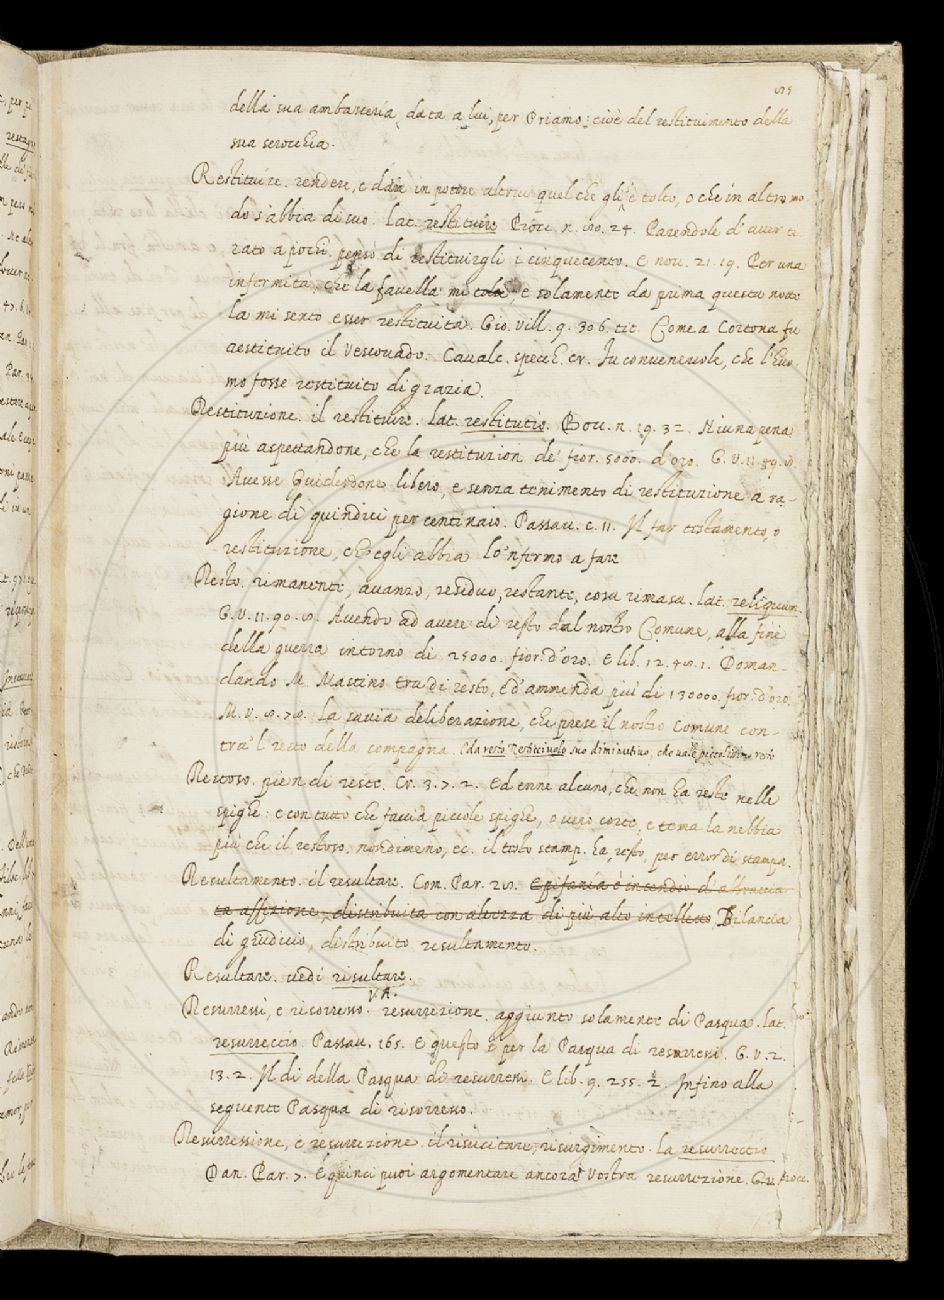 della sua ambasceria, data a lui, per Priamo: cioè del restituimento della
sua serocchia.
Restituire. rendere, e dare in potere altrui quel che gli è tolto, o che in altro mo-
do s'abbia di suo. lat. restituire Bocc. n. 24. Parendole d'aver ti-
rato a pochi pensò di restituirgli i cinquecento. E nov. 21. 19. Per una
infermità, che la favella mi tolse, e solamente da prima questa notte
la mi sento esser restituita. Gio. Vill. 9. 306. tit. Come a Cortona fu
restituito il Vescovado. Cavalc. specch. cr. Fu convenevole, che l'huo-
mo fosse restituito di grazia.
Restituzione. il restituire. lat. restitutio. Bocc. n. 19. 32. Niuna pena
più aspettandone, che la restituzion de' fior. 5000. d'oro. G. V. 11. 89.
Avesse Guiderdone libero, e senza tenimento di restituzione a ra-
gione di quindici per centinaio. Passav. c. 11. Il far testamento, o
restituzione, ch'egli abbia lo 'nfermo a fare
Resto. rimanente, avanzo, residuo, restante, cosa rimasa. lat. reliquum.
G. V. 11. 90. 5. Avendo ad avere di resto dal nostro Comune, alla fine
della guerra intorno di 25000. fior. d'oro. E lib. 12. 45. 1. Doman-
dando M. Mastino tra di resto, e d'ammenda più di 130000. fior. d'oro.
M. V. 5. 75. La savia deliberazione, che prese il nostro Comune con-
tra 'l resto della compagna. E da resto resticciuolo suo diminutivo, che vale piccol resto
Restoso. pien di reste. Cr. 3. 7. 2. Ed enne alcuno, che non ha reste nelle
spighe: e con tutto che faccia piccole spighe, o vero corte, e tema la nebbia
più che il restoso. nondimeno, ec. il testo stamp. ha, resto, per error di stampa.
Resultamento. il resultare. Com. Par. 25. Epifania è incendio di abbraccia-
ta affezione, distribuita con altezza di più alto intelletto Bilancia
di giudicio, distribuito resultamento.
Resultare. vedi risultare.
V. A.
Resurressi, e risorresso. resurrezione. aggiunto solamente di Pasqua. lat.
resurrectio. Passav. 165. E questo è per la Pasqua di resurressi. G. V. 2.
13. 2. Il dì della Pasqua di resurressi. E lib. 9. 255. 2. Infino alla
seguente Pasqua di risorresso.
Resurressione, e resurrezione. il risucitare, risurgimento. la resurrectio
Dan. Par. 7. E quinci puoi argomentare ancora Vostra resurrezione.